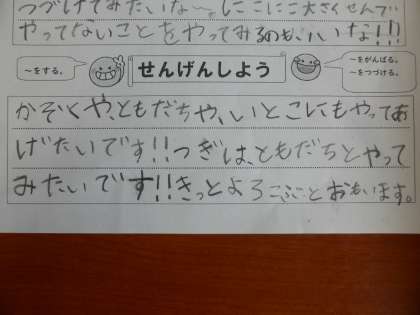 つづけてみたいな〜。にこにこ大さくせんで
やってないことをやってみるのも、いいな!!!
〜をする。
せんげんしよう
〜をがんばる。
〜をつづける。
かぞくや、ともだちや、いとこにもやってあ
げたいです!!つぎは、ともだちとやって
みたいです!!きっとよろこぶとおもいます。